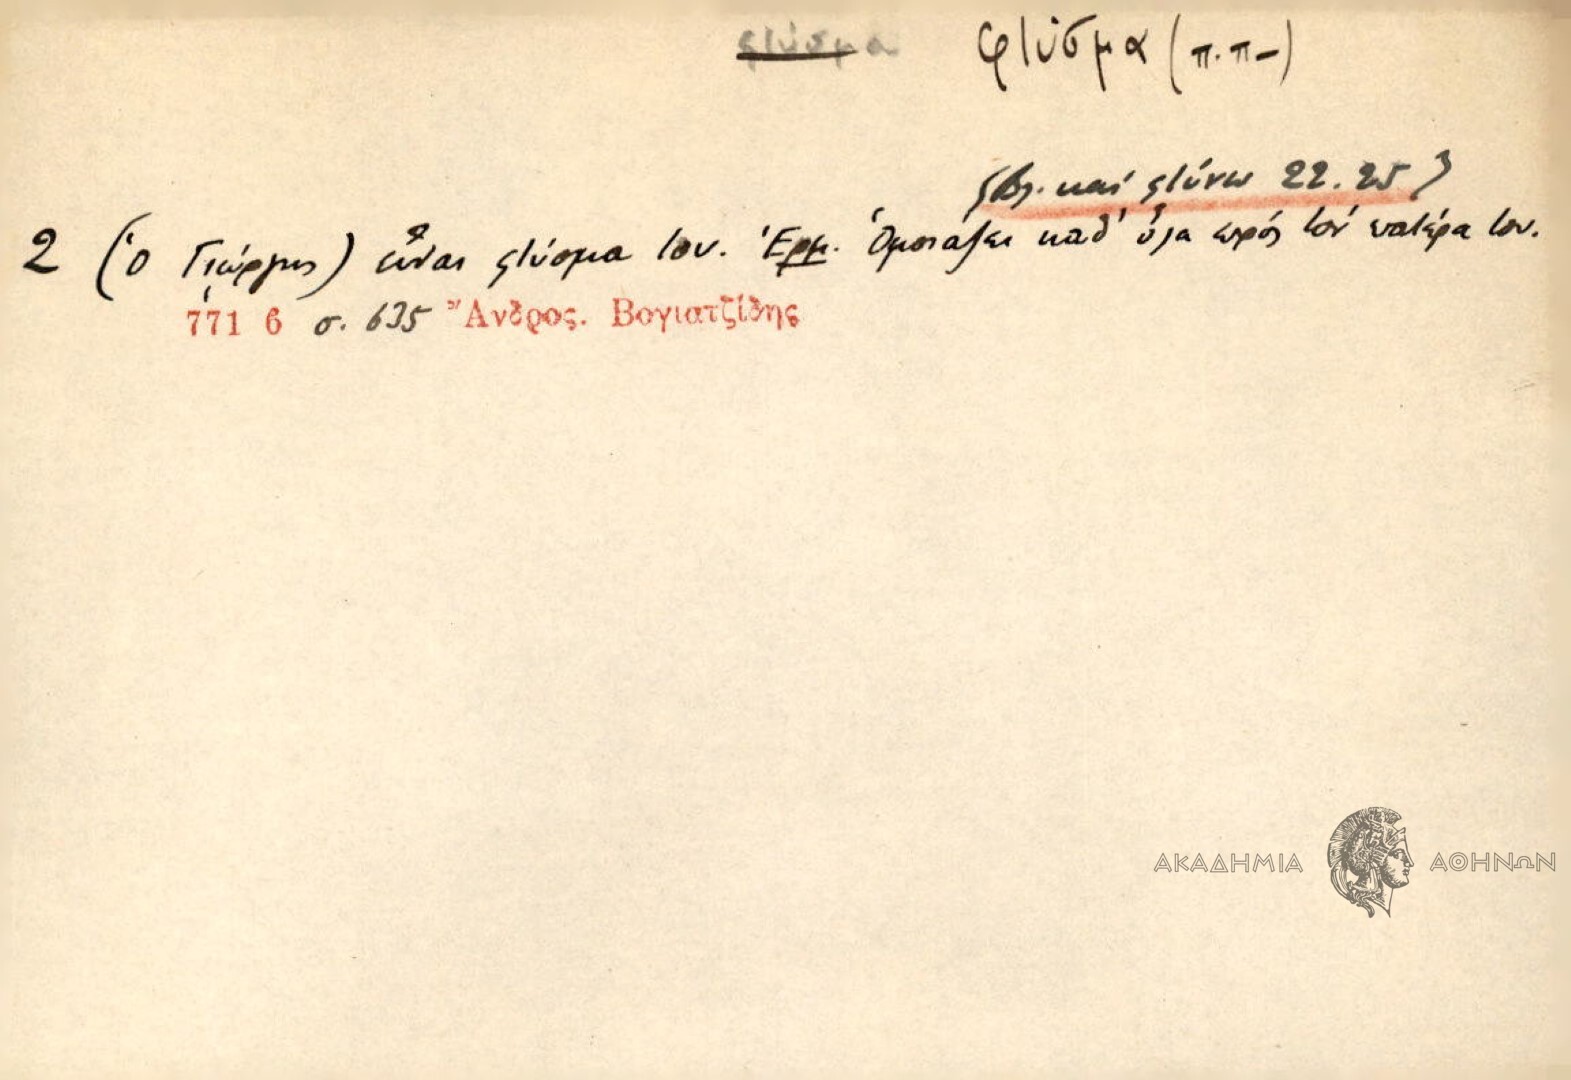 φτύσμα φτύσμα (π.π-)
(Βλ. καὶ φτύνω 22.25)
2 (ὁ Γιώργης) εἶναι φτύσμα του. Ἑρμ. Ὁμοιάζει καθ' ὅλα πρὸς τὸν πατέρα του.
771 6 σ. 635 Ἄνδρος. Βογιατζίδης
ΑΚΑΔΗΜΙΑ ΑΘΗΝΩΝ